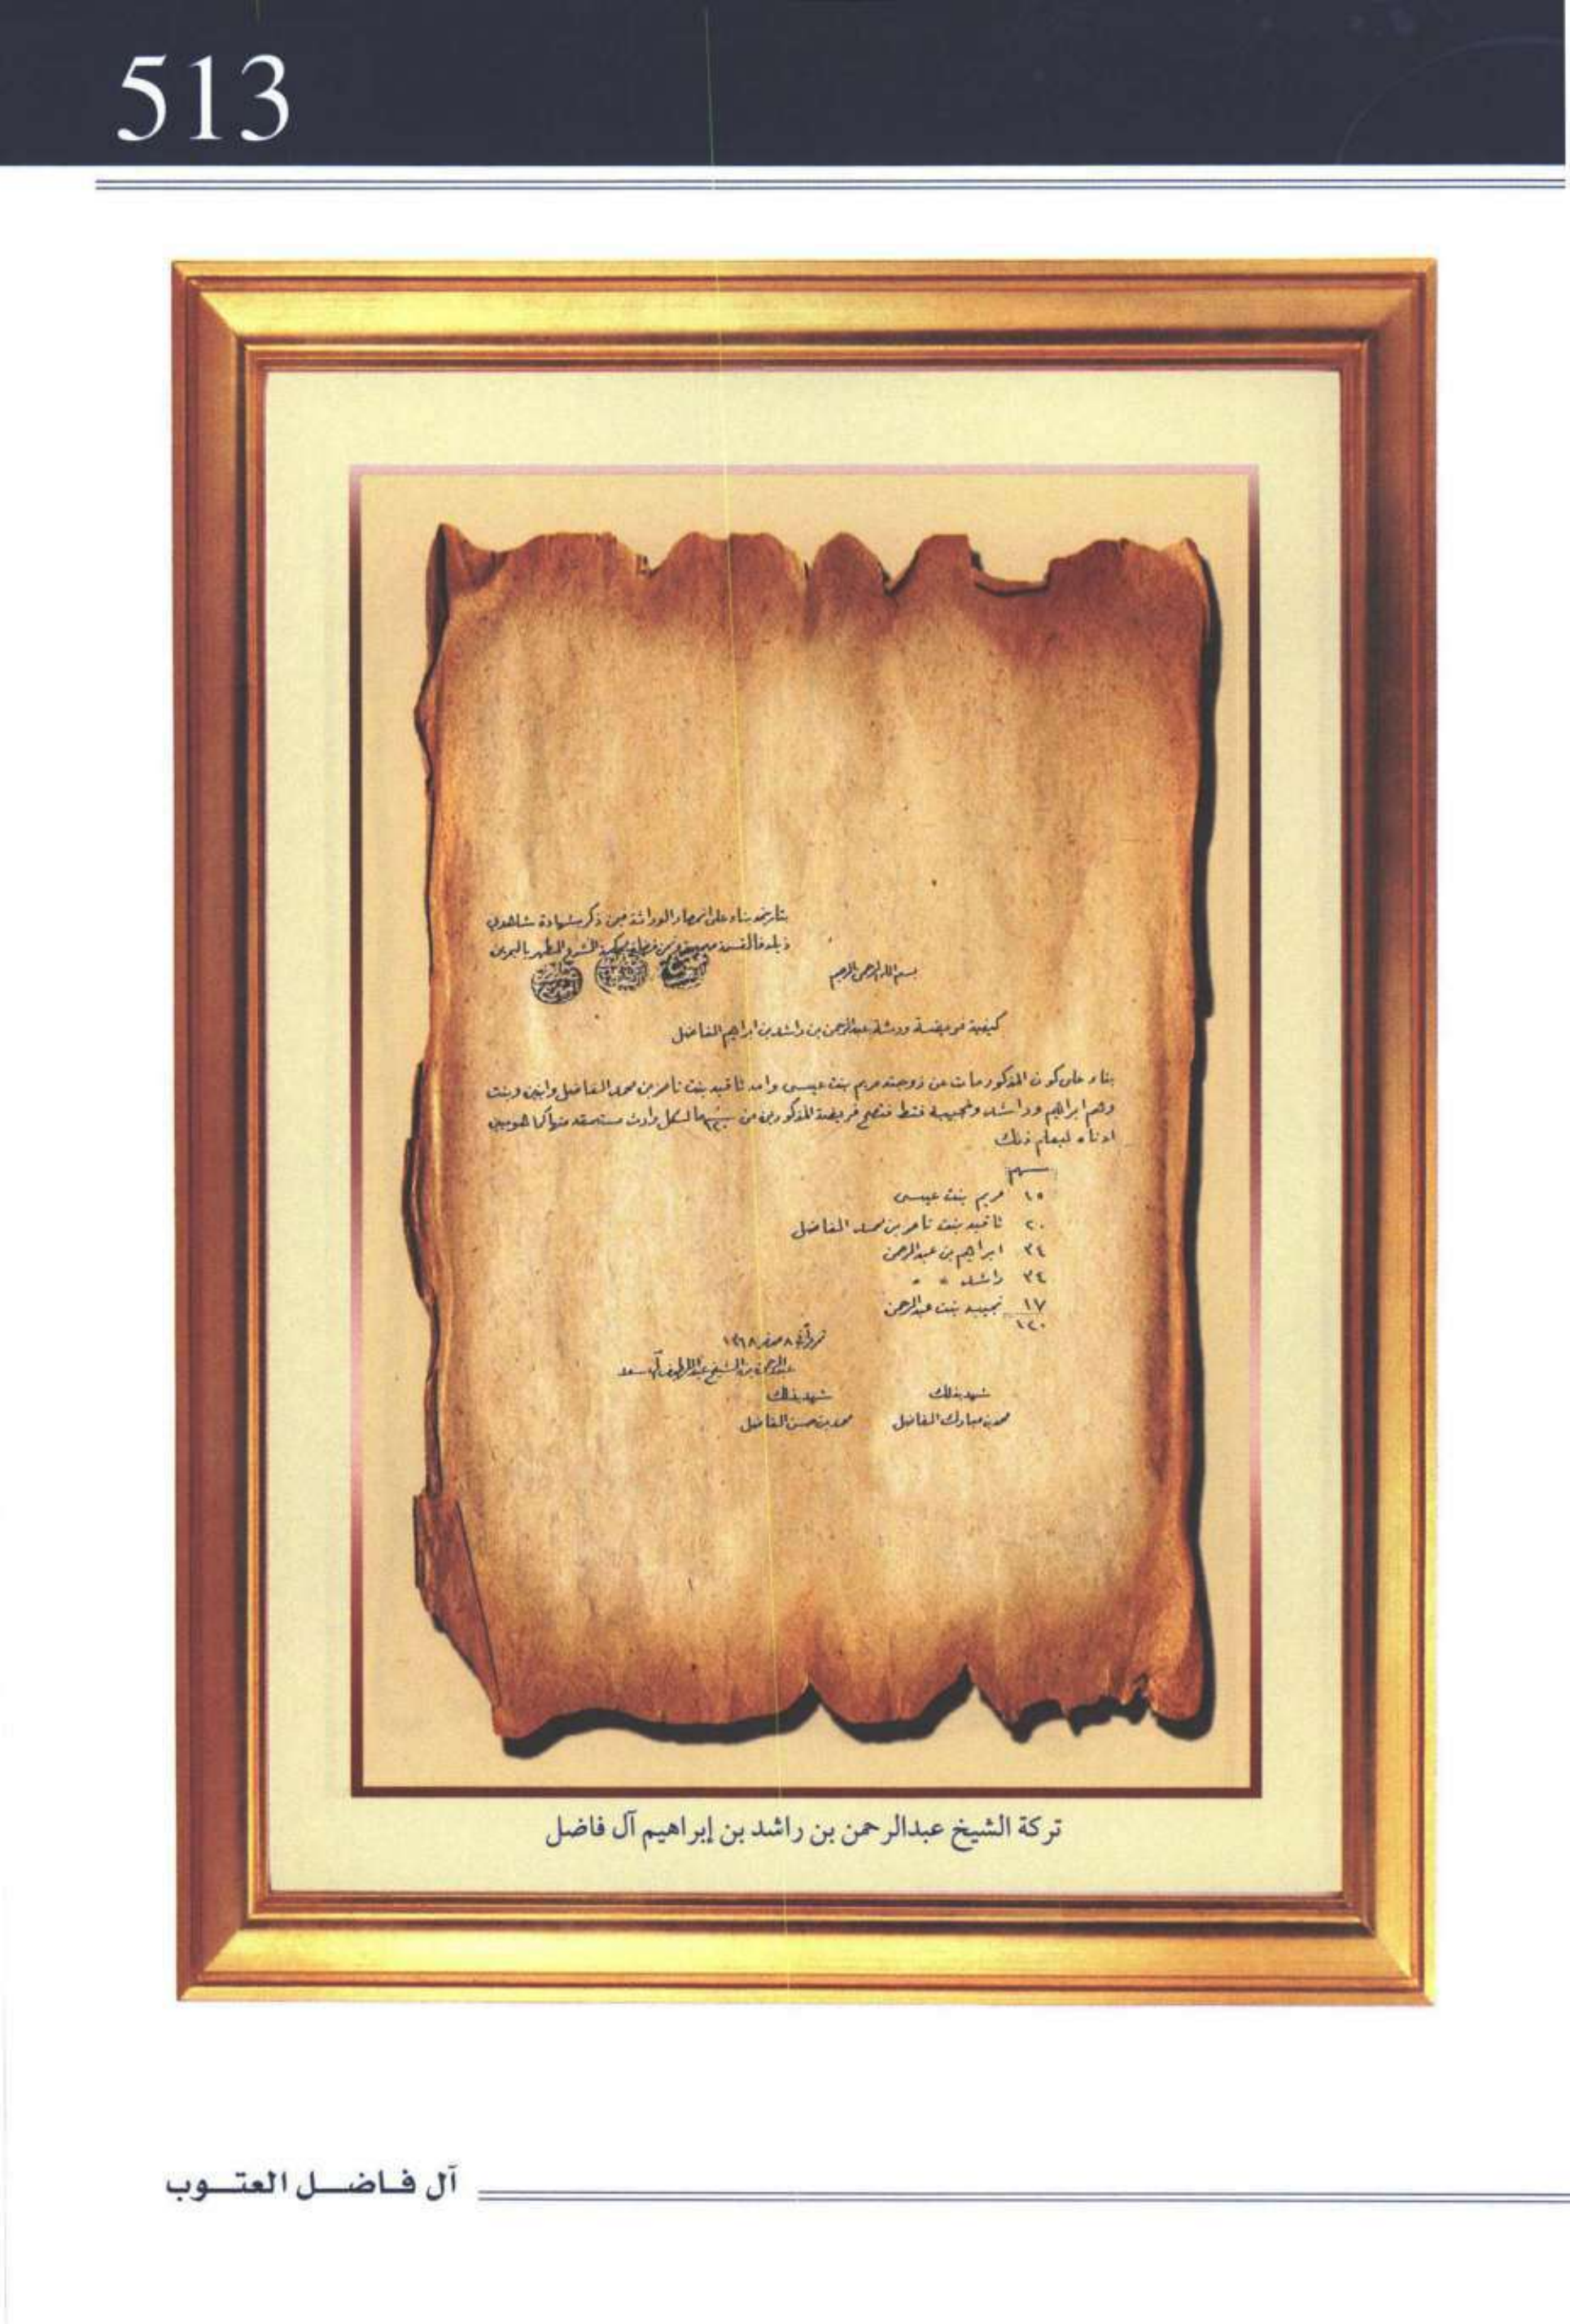 513
بتاريخه بناء على انحصار الوراثة فيمن ذكر بشهادة شاهدي
ذيله فالقسمة صحيحة من قضاة محكمة الشرع المطهر بالبحرين
بسم الله الرحمن الرحيم
كيفية فريضة ورثة عبدالرحمن بن راشد بن ابراهيم الفاضل
بناء على كون المذكور مات عن زوجته مريم بنت عيسى وامه ثاقبه بنت ناصر بن محمد الفاضل وابنين وبنت
وهم ابراهيم وراشد ونجيبه فقط فتصح فريضة المذكورين من ١٢٠ سهما لكل وارث مستحقه منها كما هو مبين
ادناه ليعلم ذلك
سهم
١٥ مريم بنت عيسى
٢٠ ثاقبه بنت ناصر بن محمد الفاضل
٣٤ ابراهيم بن عبدالرحمن
٣٤ راشد " "
١٧ نجيبه بنت عبدالرحمن
١٢٠
٨ صفر ١٣٦٨
عبدالرحمن بن الشيخ عبداللطيف آل سعد
شهد بذلك شهد بذلك
محمد بن مبارك الفاضل محمد بن حسن الفاضل
تركة الشيخ عبدالرحمن بن راشد بن إبراهيم آل فاضل
آل فاضل العتوب